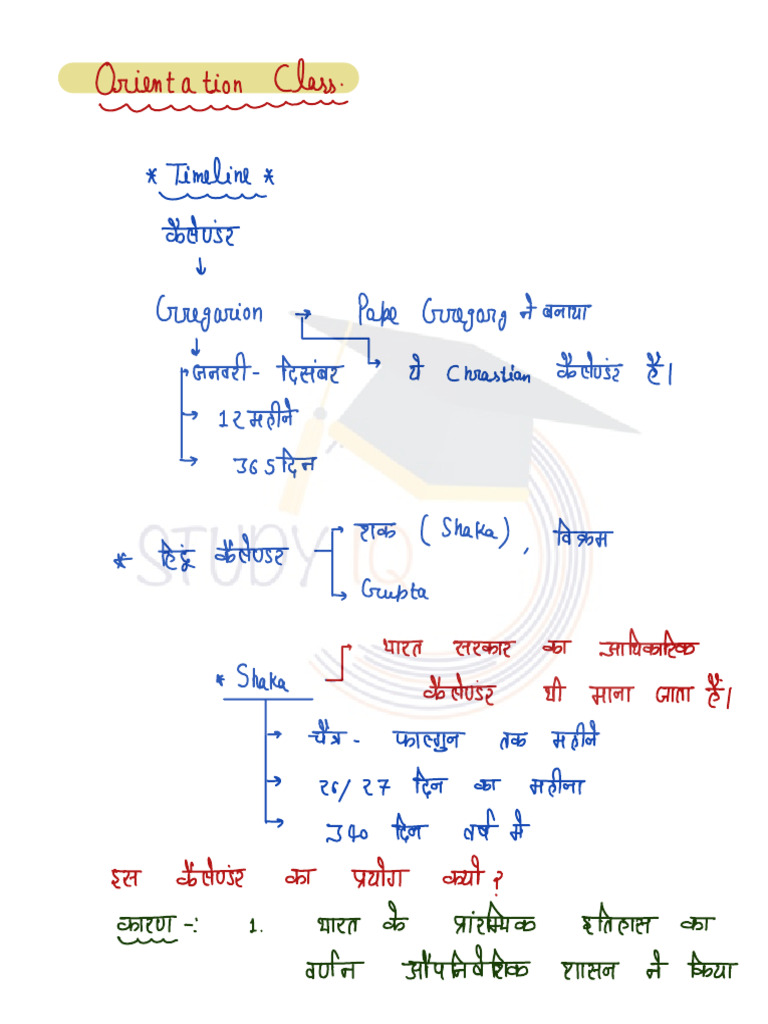 Orientation Class.
* Timeline *
कैलेण्डर
Gregarion → Pape Gregarg ने बनाया
जनवरी - दिसंबर ये Chrastian कैलेण्डर है।
12 महीने
365 दिन
STUDY IQ
* हिंदू कैलेण्डर शक (Shaka), विक्रम
Gupta
* Shaka भारत सरकार का आधिकारिक
कैलेण्डर भी माना जाता है।
चैत्र - फाल्गुन तक महीने
26/27 दिन का महीना
340 दिन वर्ष में
इस कैलेण्डर का प्रयोग क्यों?
कारण -: 1. भारत के प्रांरम्भिक इतिहास का
वर्णन औपनिवेशिक शासन ने किया